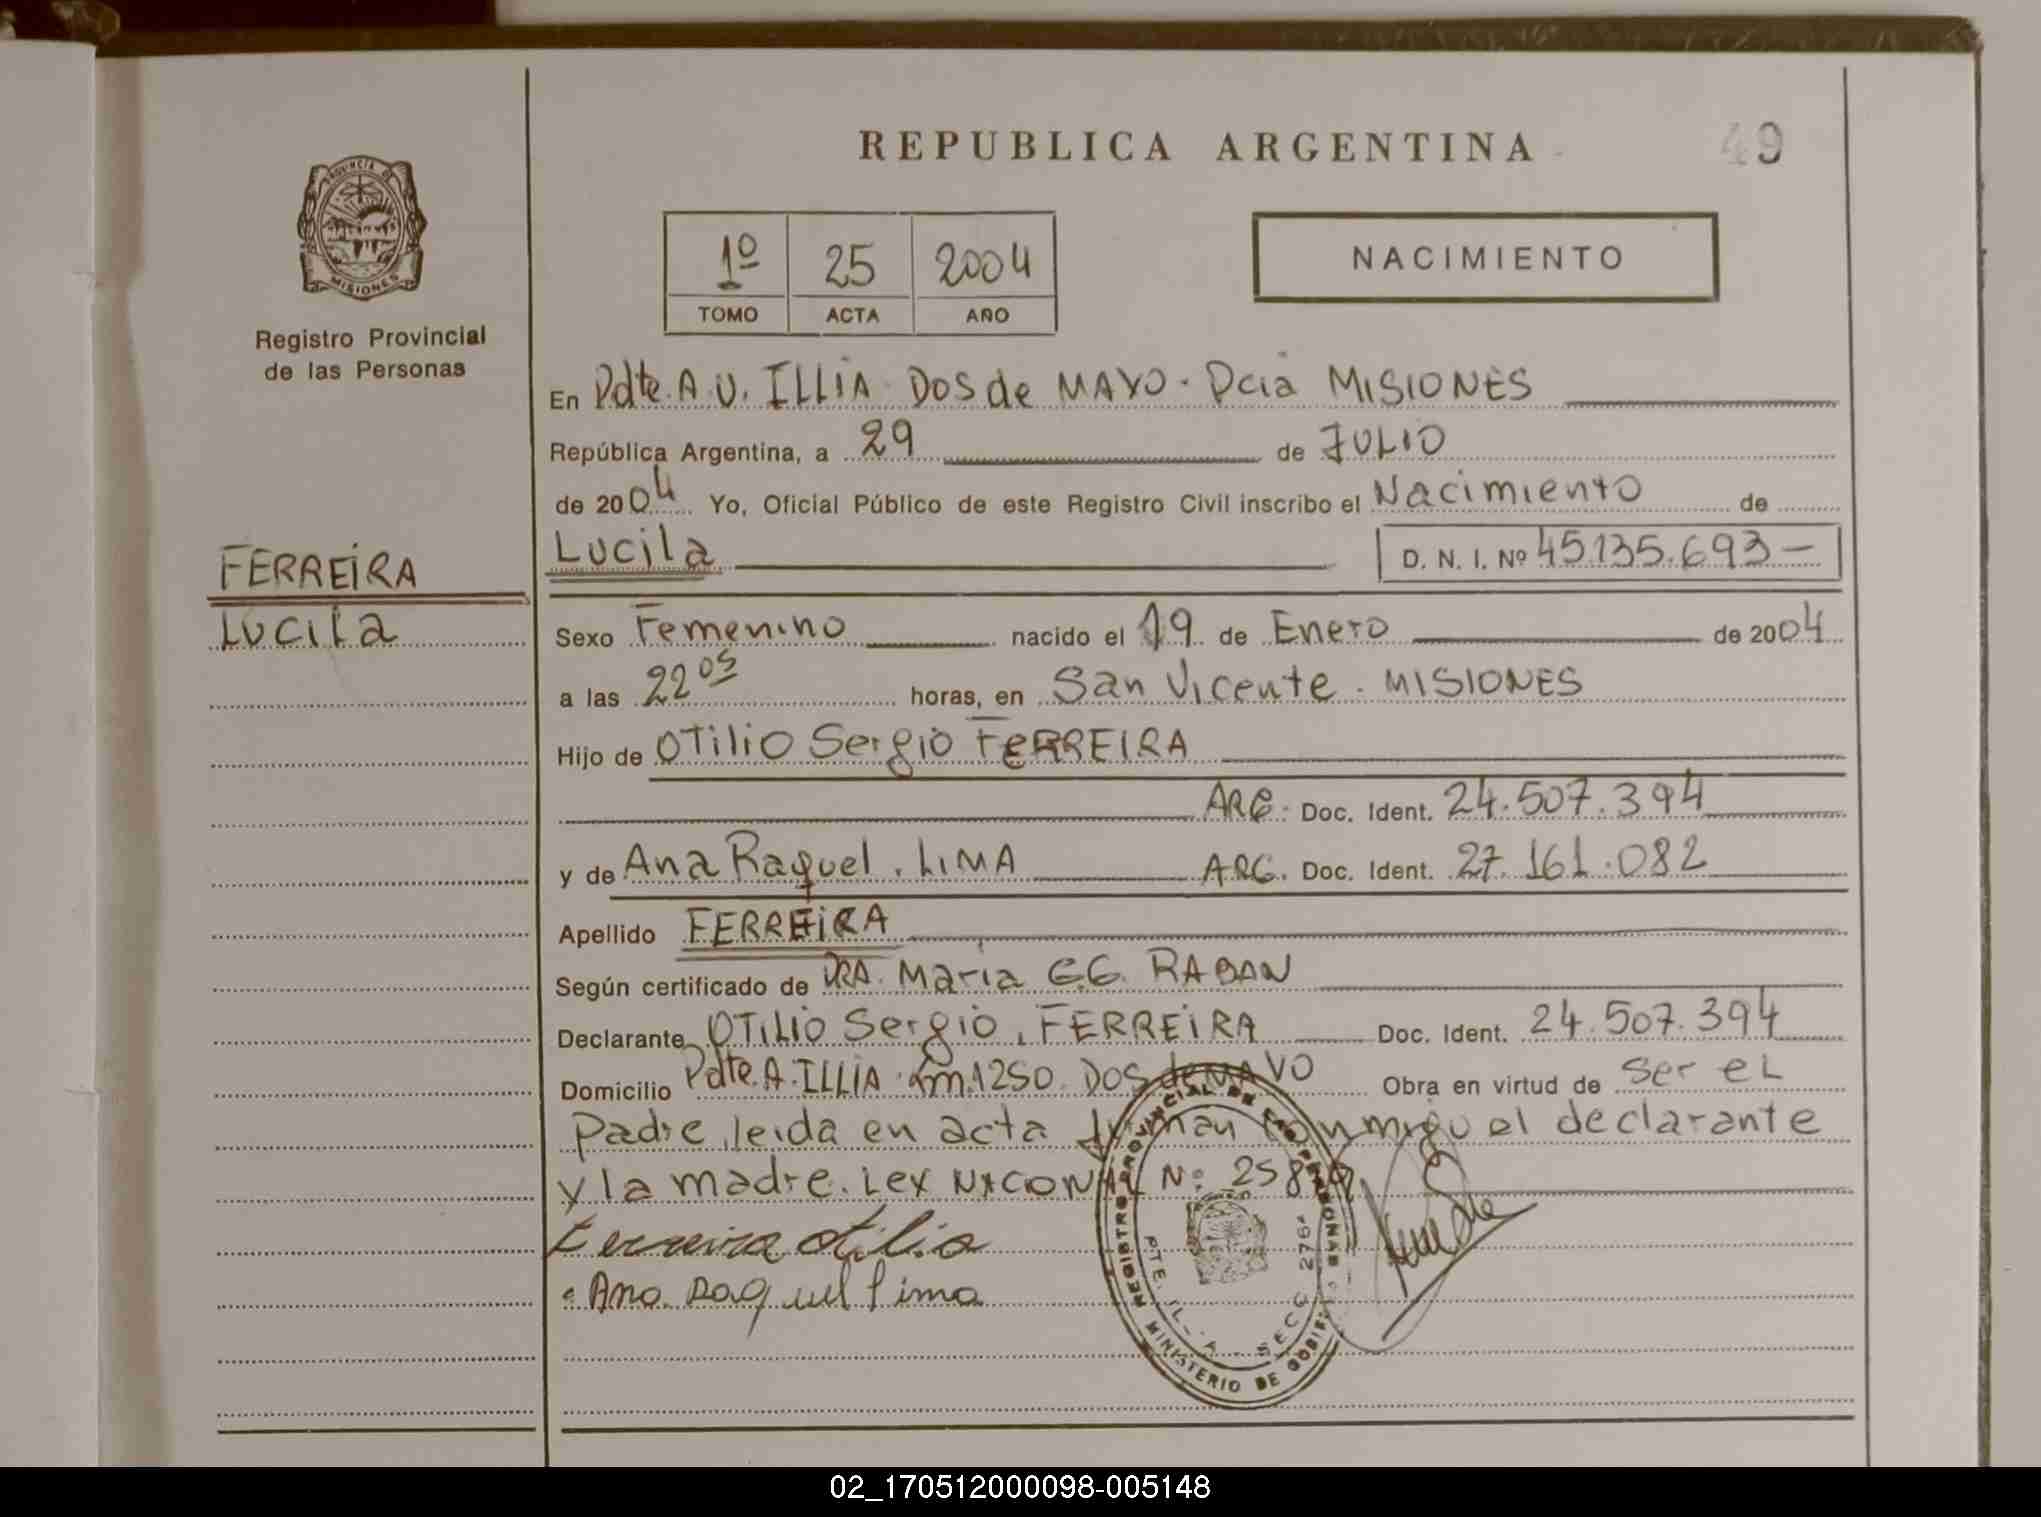 REPUBLICA ARGENTINA
49
PROVINCIA DE
MISIONES
Registro Provincial
de las Personas
1º 25 2004
TOMO ACTA AÑO
NACIMIENTO
FERREIRA
Lucila
En Pdte. A. U. ILLIA. DOS de MAYO. Pcia MISIONES
República Argentina, a 29 de JULIO
de 2004 Yo, Oficial Público de este Registro Civil inscribo el Nacimiento de
Lucila D. N. I. Nº 45.135.693-
Sexo Femenino nacido el 19 de Enero de 2004
a las 22 05 horas, en San Vicente. MISIONES
Hijo de OTILIO Sergio FERREIRA
ARG. Doc. Ident. 24.507.394
y de Ana Raquel. LIMA ARG. Doc. Ident. 27.161.082
Apellido FERREIRA
Según certificado de DRA. Maria G.G. RABAN
Declarante OTILIO Sergio. FERREIRA Doc. Ident. 24.507.394
Domicilio Pdte. A. ILLIA. Km. 1250. DOS de MAYO Obra en virtud de ser el
Padre, leida en acta firman conmigo el declarante
y la madre. Ley NACONAL Nº 258
Ferreira Otilio
Ana Raquel Lima
REGISTRO PROVINCIAL DE LAS PERSONAS
MINISTERIO DE GOBIE
PTE. ILLIA - SECC 276
02_170512000098-005148